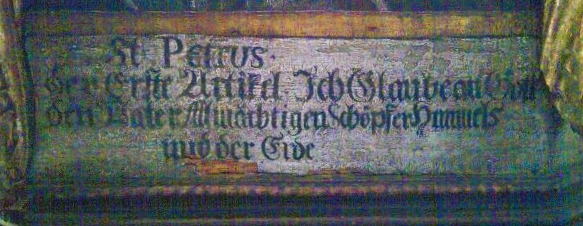 St Petrus.
Der Erste Artikel Ich Glaube an Gott
den Vater Allmächtigen Schöpfer Himmels
und der Erde